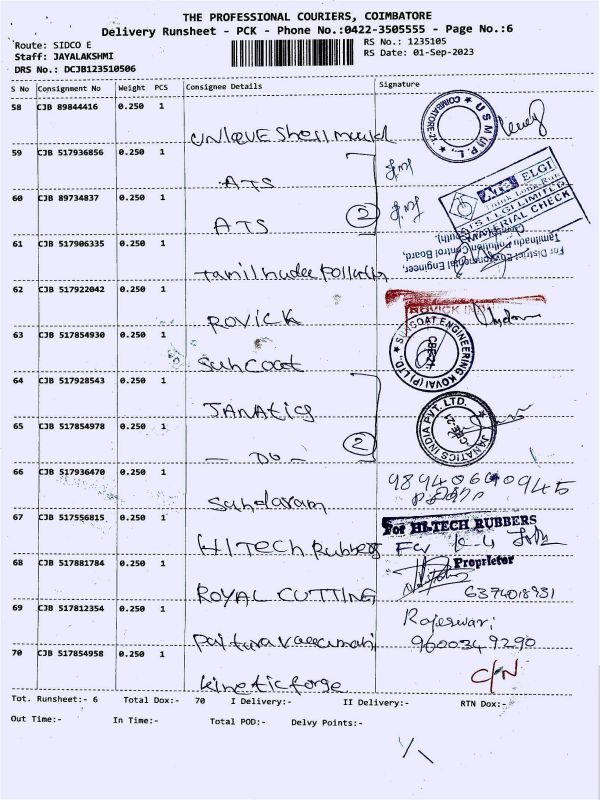 THE PROFESSIONAL COURIERS, COIMBATORE
Delivery Runsheet - PCK - Phone No.:0422-3505555 - Page No.:6
Route: SIDCO E
RS No.: 1235105
Staff: JAYALAKSHMI
RS Date: 01-Sep-2023
DRS No.: DCJB123510506
S No Consignment No Weight PCS Consignee Details Signature
58 CJB 89844416 0.250 1
UNIQUE Shell mould
COIMBATORE-21 U S M (I) P. L.
59 CJB 517936856 0.250 1
ATS
60 CJB 89734837 0.250 1
ATS 2
ATS ELGI
ATS ELGI LIMITED
MATERIAL CHECK
61 CJB 517906335 0.250 1
Tamilnadu Pollution
For District Environmental Engineer,
Tamilnadu Pollution Control Board,
62 CJB 517922042 0.250 1
ROVICK
ROVICK INDIA
63 CJB 517854930 0.250 1
Suncoat
SUNCOAT ENGINEERING KOVAI (P) LTD., CBE-21.
64 CJB 517928543 0.250 1
JANATICS
65 CJB 517854978 0.250 1
- Do - 2
JANATICS INDIA PVT. LTD. CBE-21
66 CJB 517936470 0.250 1
Sundaram
9894060945
67 CJB 517556815 0.250 1
HITECH Rubbers
For HI-TECH RUBBERS
Proprietor
68 CJB 517881784 0.250 1
ROYAL CUTTING
6374018931
69 CJB 517812354 0.250 1
Rajeswari
9600349290
70 CJB 517854958 0.250 1
kinetic forge
C/N
Tot. Runsheet:- 6 Total Dox:- 70 I Delivery:- II Delivery:- RTN Dox:-
Out Time:- In Time:- Total POD:- Delvy Points:-